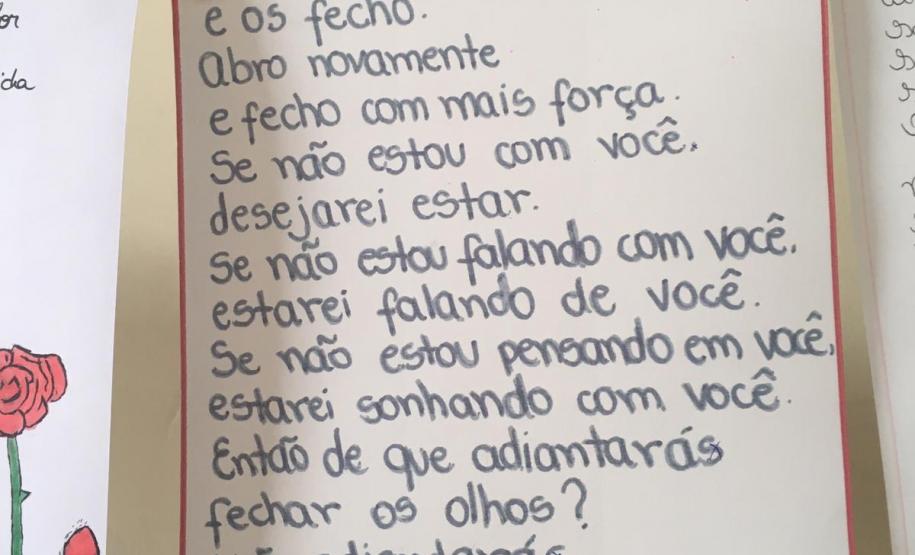 e os fecho.
Abro novamente
e fecho com mais força.
Se não estou com você.
desejarei estar.
Se não estou falando com você,
estarei falando de você.
Se não estou pensando em você,
estarei sonhando com você.
Então de que adiantarás
fechar os olhos?